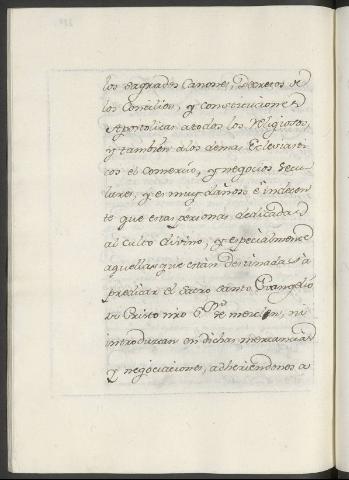 los sagrados Canones, Decretos de
los Concilios, y constituciones
Apostolicas a todos los Religiosos,
y tambien a los demas Eclesiasti
cos el comercio, y negocios secu
lares, y es muy dañoso e indecen
te que estas personas dedicadas
al culto divino, y especialmente
aquellas que estàn destinadas à
predicar el Sacro santo Evangelio
de Cristo nro Sr. se mezclen, ni
introduzcan en dichas mercancias
y negociaciones, adheriendonos a